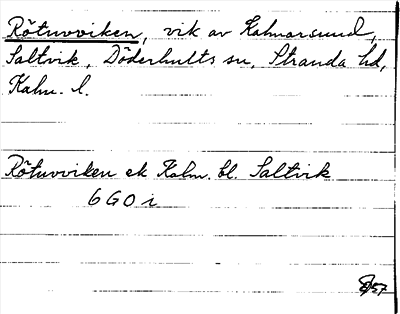 Rötuvviken, vik av Kalmarsund,
Saltvik, Döderhults sn, Stranda hd,
Kalm. l.
Rötuvviken ek Kalm. bl. Saltvik
6 G 0 i
/57